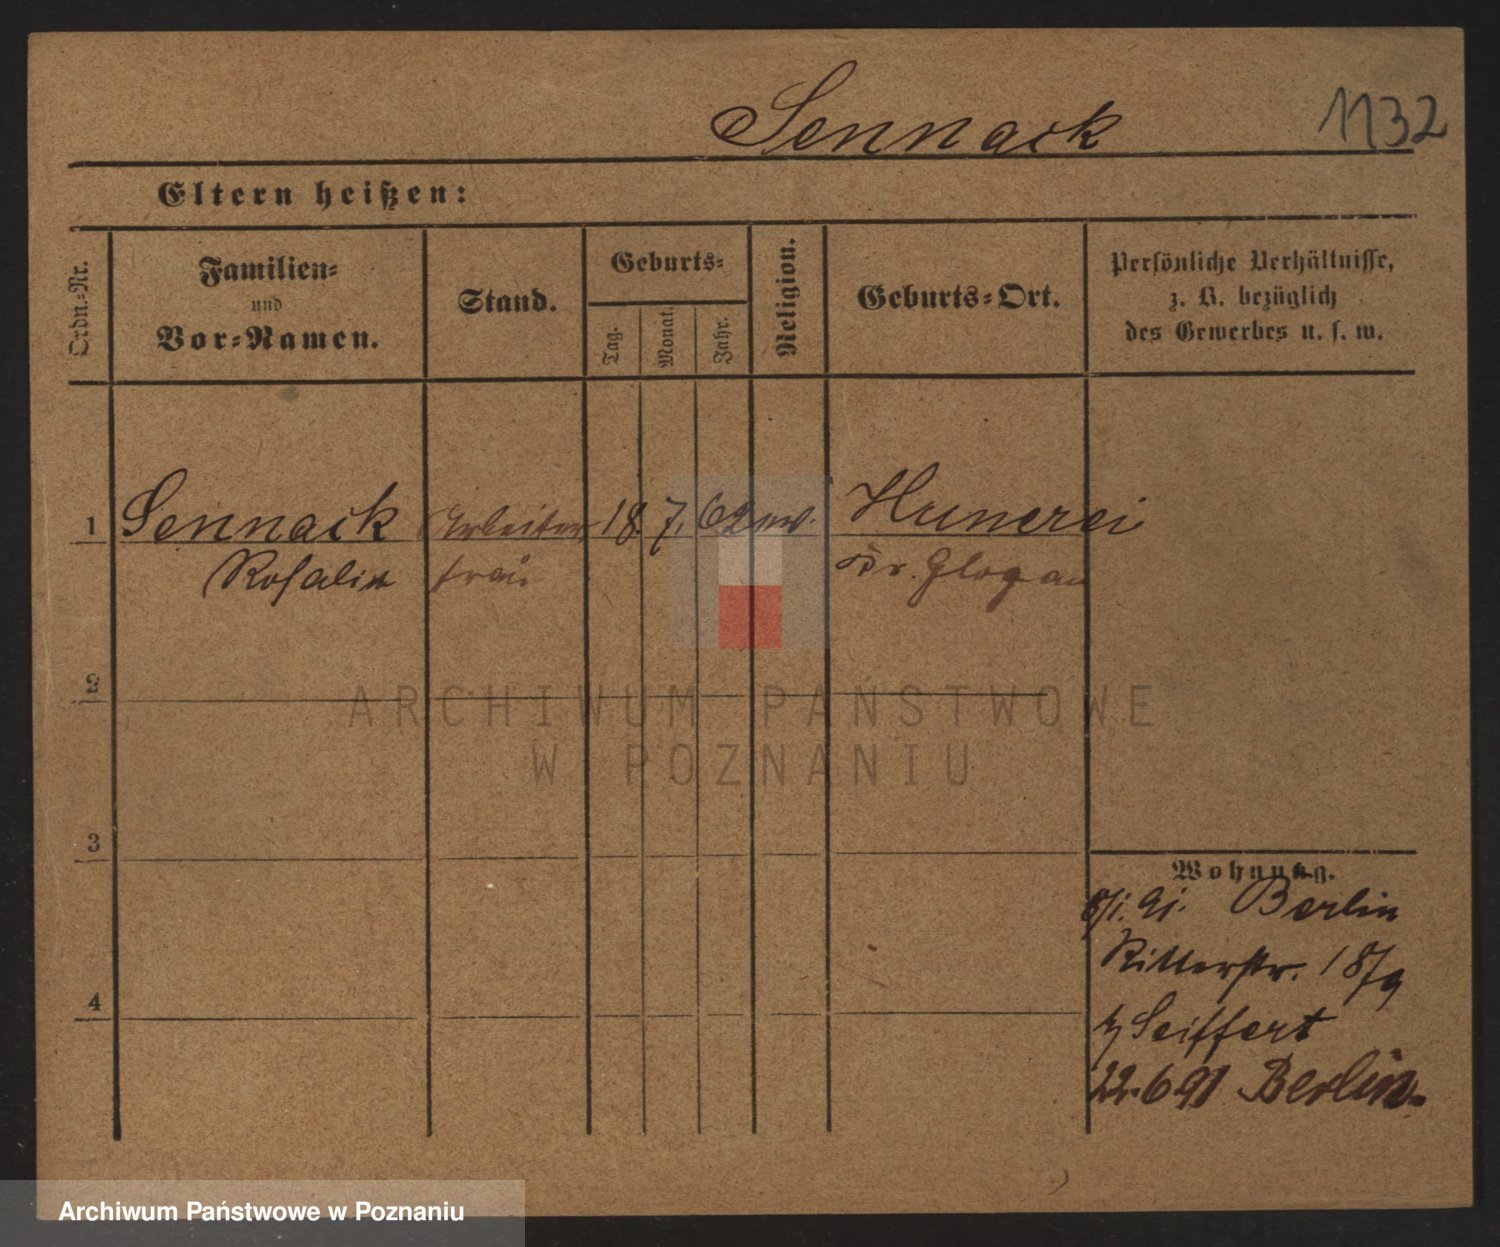 Sennack
1132
Eltern heißen:
Ordn.-Nr.
Familien-
und
Vor-Namen.
Stand.
Geburts-
Tag.
Monat.
Jahr.
Religion.
Geburts-Ort.
Persönliche Verhältnisse,
z. B. bezüglich
des Gewerbes u. s. w.
1 Sennack Arbeiter 18. 7. 62 ev. Hunerei
Rosalie frau Kr. Glogau
2
ARCHIWUM PAŃSTWOWE
W POZNANIU
3
Wohnung.
8/1. 91. Berlin
Ritterstr. 18/9
4
b/ Seiffert
22.6 91 Berlin.
Archiwum Państwowe w Poznaniu